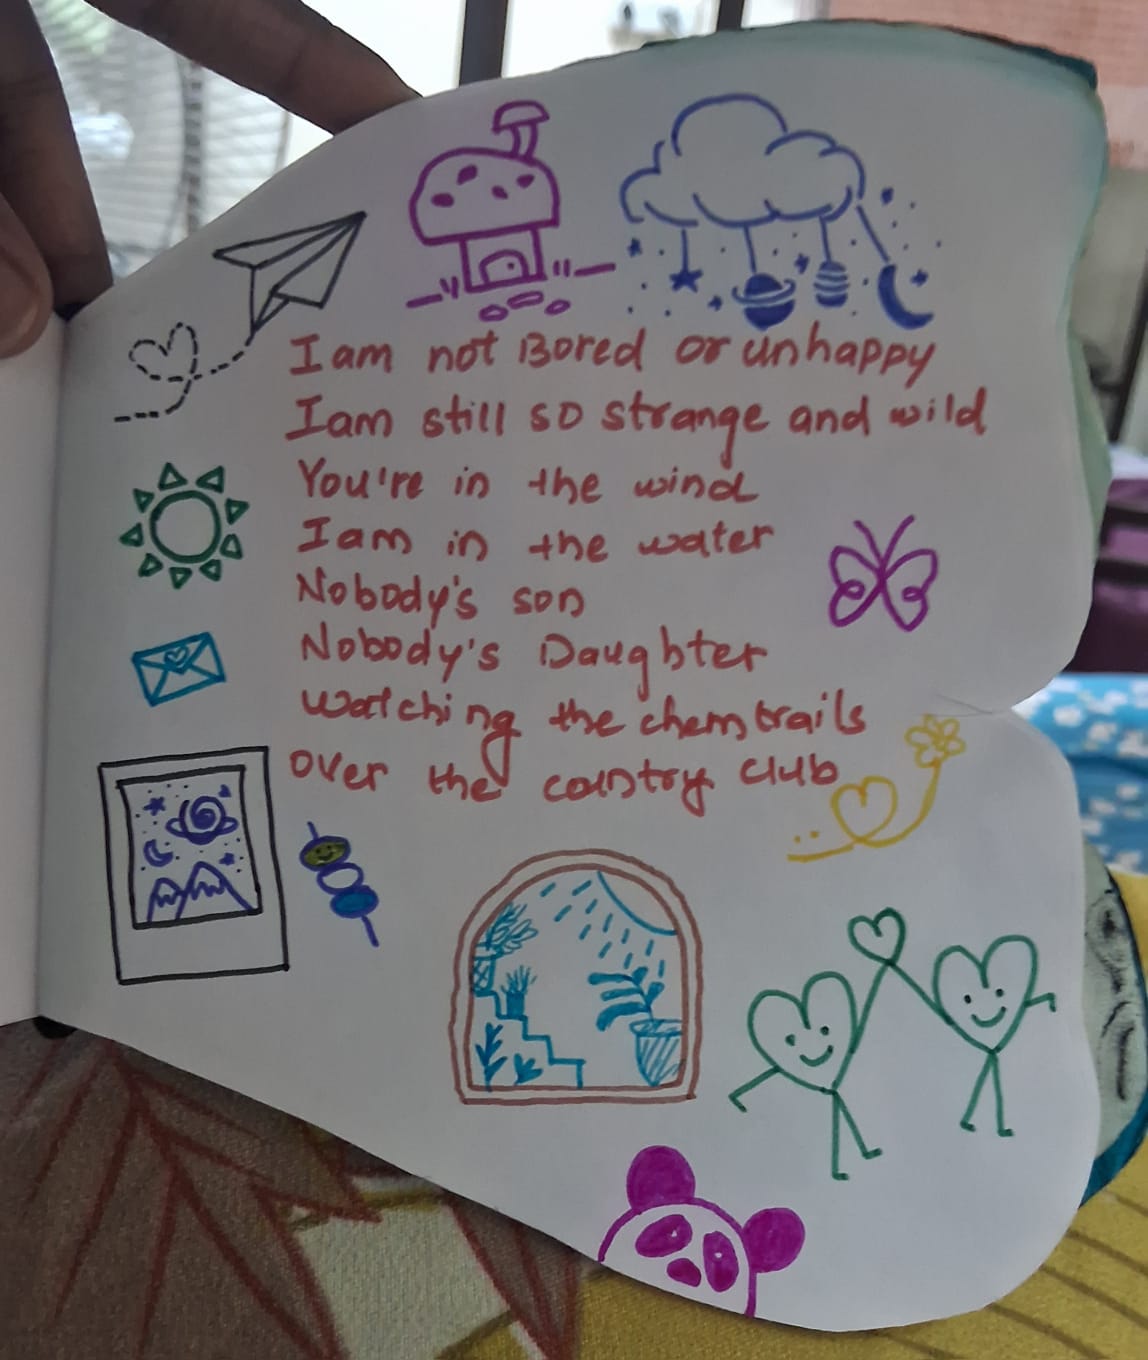 I am not Bored or unhappy
I am still so strange and wild
You're in the wind
I am in the water
Nobody's son
Nobody's Daughter
watching the chemtrails
over the country club